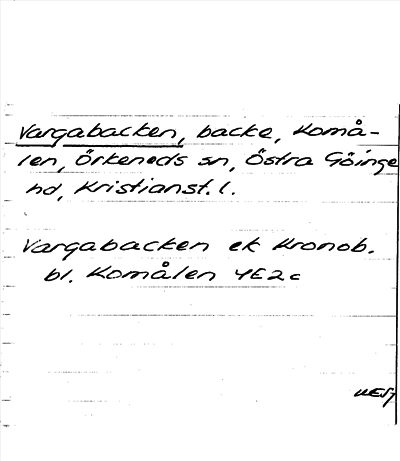 Vargabacken, backe, Komå-
len, Örkeneds sn, Östra Göinge
hd, Kristianst. l.
Vargabacken ek Kronob.
bl. Komålen 4E2c